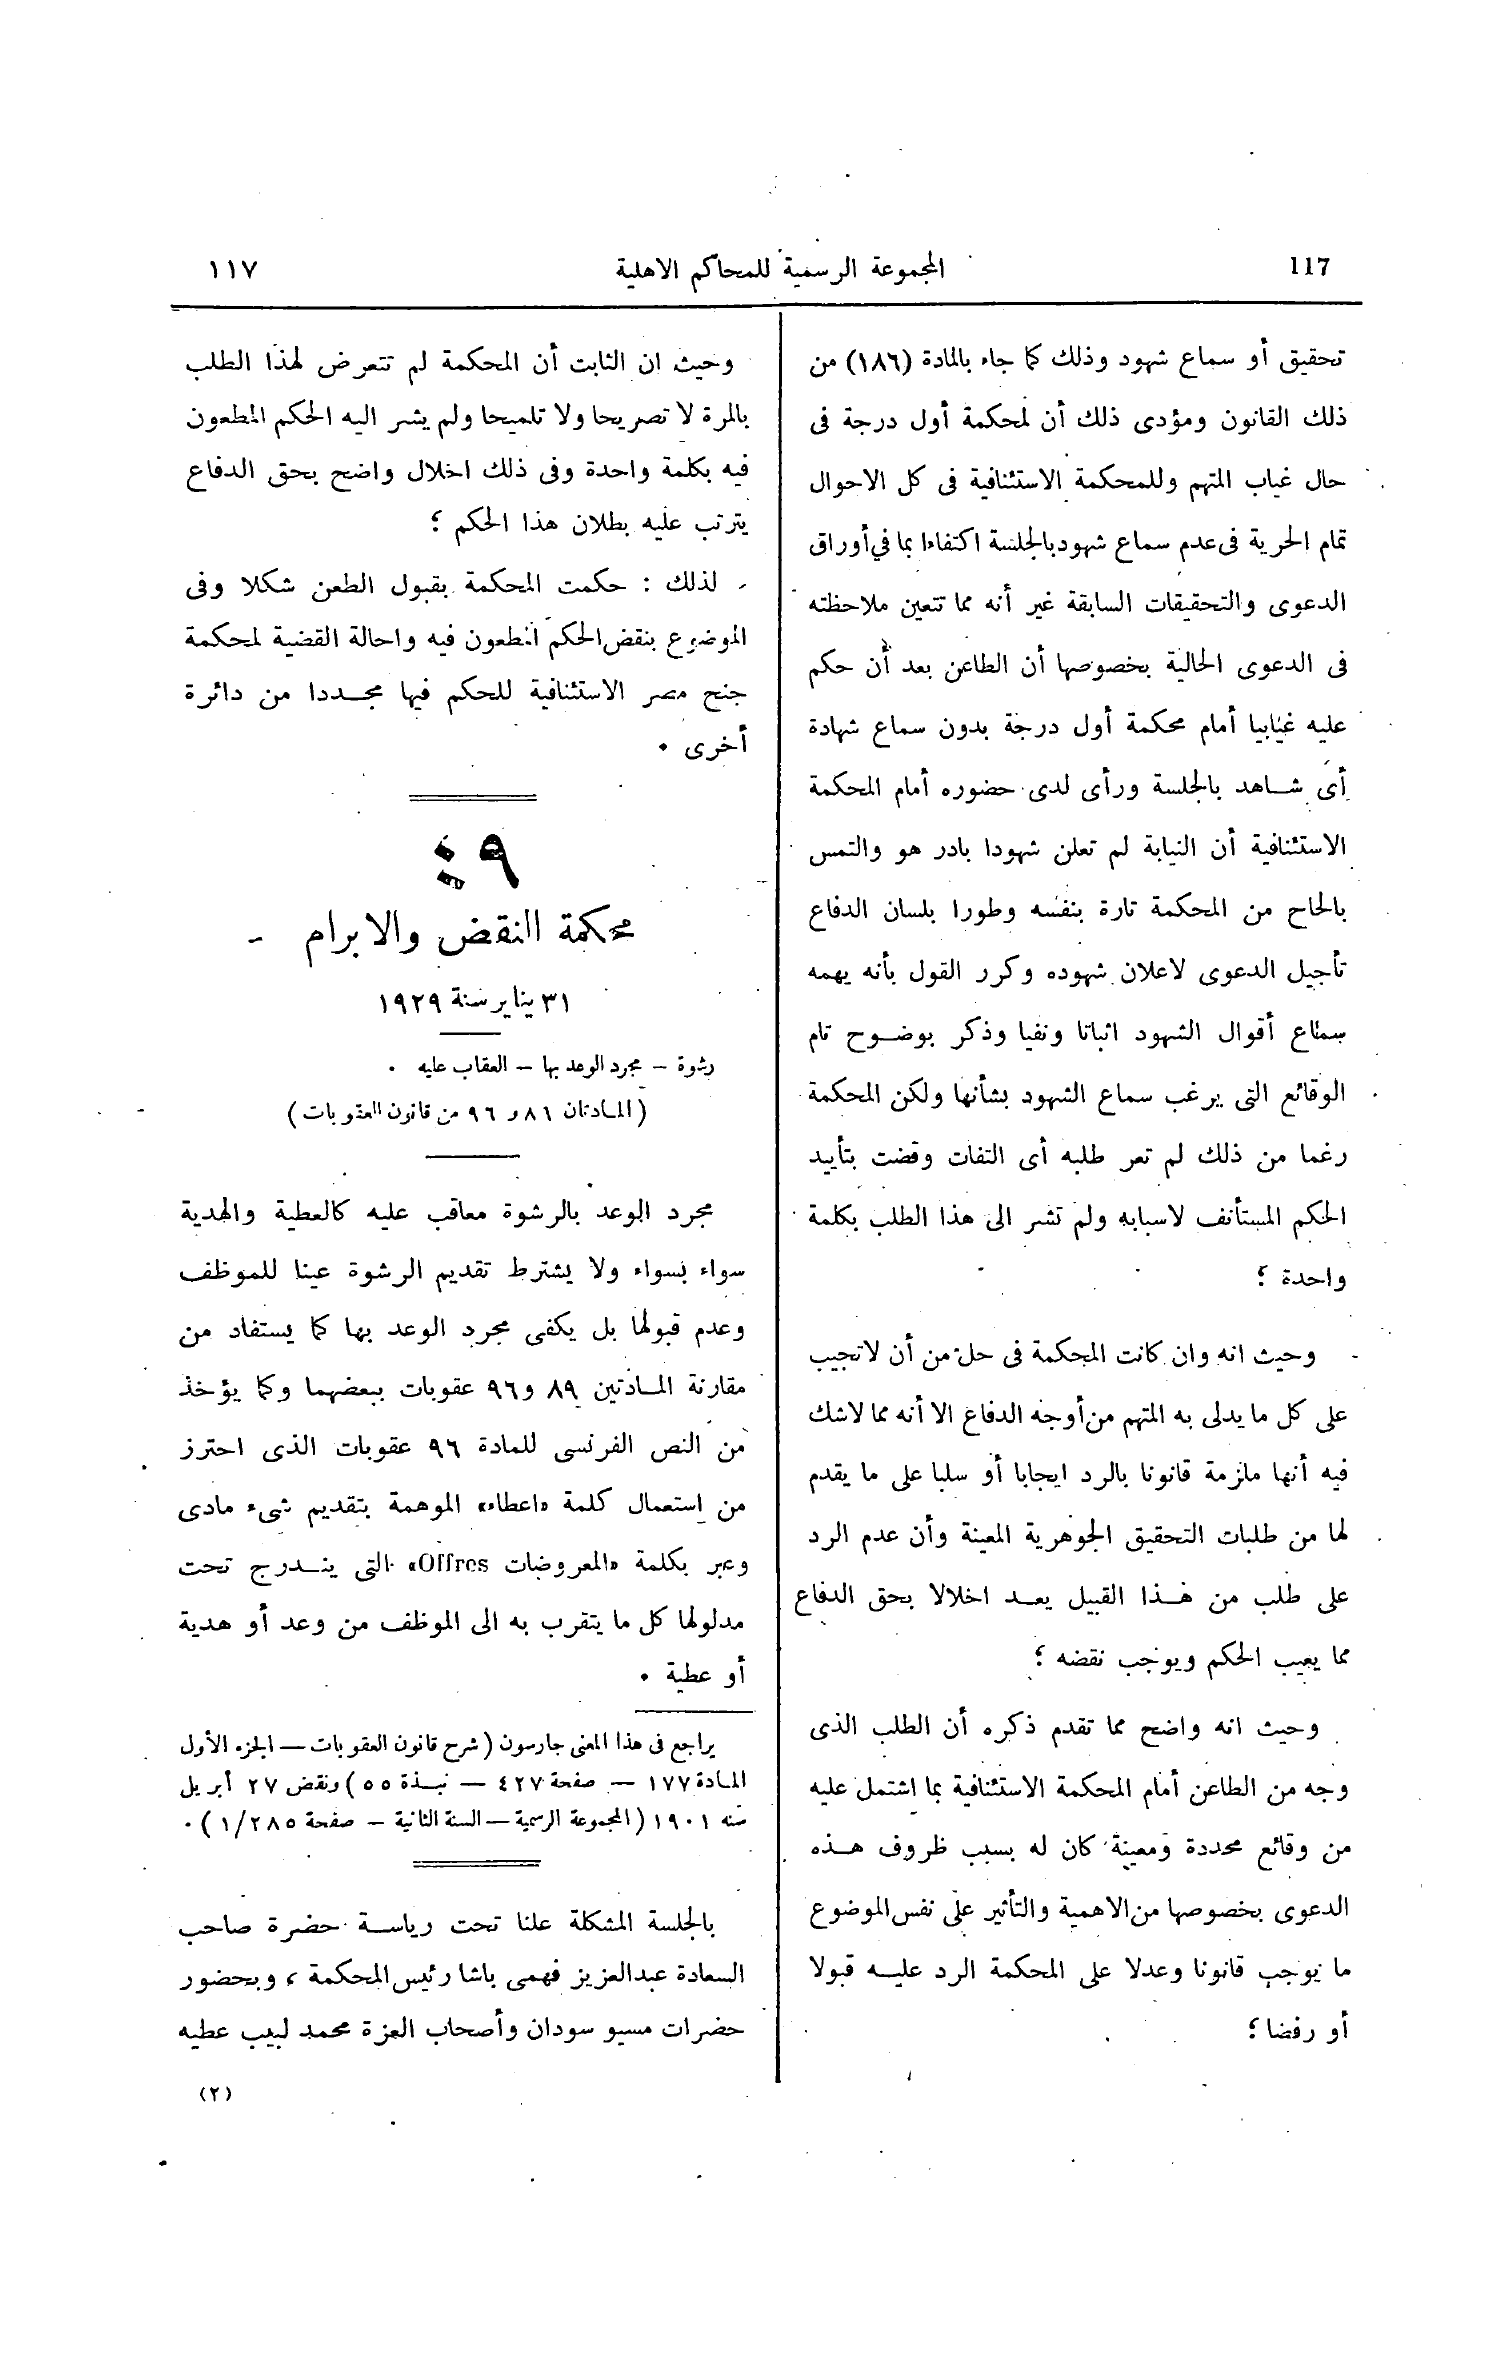 117
المجموعة الرسمية للمحاكم الاهلية
١١٧
تحقيق أو سماع شهود وذلك كما جاء بالمادة (١٨٦) من
ذلك القانون ومؤدى ذلك أن لمحكمة أول درجة فى
حال غياب المتهم وللمحكمة الاستئنافية فى كل الاحوال
تمام الحرية فى عدم سماع شهود بالجلسة اكتفاءا بما في أوراق
الدعوى والتحقيقات السابقة غير أنه مما تتعين ملاحظته
فى الدعوى الحالية بخصوصها أن الطاعن بعد أن حكم
عليه غيابيا أمام محكمة أول درجة بدون سماع شهادة
أى شاهد بالجلسة ورأى لدى حضوره أمام المحكمة
الاستئنافية أن النيابة لم تعلن شهودا بادر هو والتمس
بالحاح من المحكمة تارة بنفسه وطورا بلسان الدفاع
تأجيل الدعوى لاعلان شهوده وكرر القول بأنه يهمه
سماع أقوال الشهود اثباتا ونفيا وذكر بوضوح تام
الوقائع التى يرغب سماع الشهود بشأنها ولكن المحكمة
رغما من ذلك لم تعر طلبه أى التفات وقضت بتأييد
الحكم المستأنف لاسبابه ولم تشر الى هذا الطلب بكلمة
واحدة ؛
وحيث انه وان كانت المحكمة فى حل من أن لا تجيب
على كل ما يدلى به المتهم من أوجه الدفاع الا أنه مما لاشك
فيه أنها ملزمة قانونا بالرد ايجابا أو سلبا على ما يقدم
لها من طلبات التحقيق الجوهرية المعينة وأن عدم الرد
على طلب من هذا القبيل يعد اخلالا بحق الدفاع
مما يعيب الحكم ويوجب نقضه ؛
وحيث انه واضح مما تقدم ذكره أن الطلب الذى
وجه من الطاعن أمام المحكمة الاستئنافية بما اشتمل عليه
من وقائع محددة ومعينة كان له بسبب ظروف هذه
الدعوى بخصوصها من الاهمية والتأثير على نفس الموضوع
ما يوجب قانونا وعدلا على المحكمة الرد عليه قبولا
أو رفضا ؛
وحيث ان الثابت أن المحكمة لم تتعرض لهذا الطلب
بالمرة لا تصريحا ولا تلميحا ولم يشر اليه الحكم المطعون
فيه بكلمة واحدة وفى ذلك اخلال واضح بحق الدفاع
يترتب عليه بطلان هذا الحكم ؛
لذلك : حكمت المحكمة بقبول الطعن شكلا وفى
الموضوع بنقض الحكم المطعون فيه واحالة القضية لمحكمة
جنح مصر الاستئنافية للحكم فيها مجددا من دائرة
أخرى .
٤٩
محكمة النقض والابرام
٣١ يناير سنة ١٩٢٩
رشوة – مجرد الوعد بها – العقاب عليه .
(المادتان ٨٦ و ٩٦ من قانون العقوبات)
مجرد الوعد بالرشوة معاقب عليه كالعطية والهدية
سواء بسواء ولا يشترط تقديم الرشوة عينا للموظف
وعدم قبولها بل يكفى مجرد الوعد بها كما يستفاد من
مقارنة المادتين ٨٩ و٩٦ عقوبات ببعضهما وكما يؤخذ
من النص الفرنسى للمادة ٩٦ عقوبات الذى احترز
من استعمال كلمة «اعطاء» الموهمة بتقديم شىء مادى
وعبر بكلمة «المعروضات Offres» التى يندرج تحت
مدلولها كل ما يتقرب به الى الموظف من وعد أو هدية
أو عطية .
يراجع فى هذا المعنى جارسون (شرح قانون العقوبات — الجزء الأول
المادة ١٧٧ – صفحة ٤٢٧ – نبذة ٥٥) ونقض ٢٧ أبريل
سنه ١٩٠١ (المجموعة الرسمية – السنة الثانية – صفحة ١/٢٨٥) .
بالجلسة المشكلة علنا تحت رياسة حضرة صاحب
السعادة عبدالعزيز فهمى باشا رئيس المحكمة ، وبحضور
حضرات مسيو سودان وأصحاب العزة محمد لبيب عطيه
(٢)